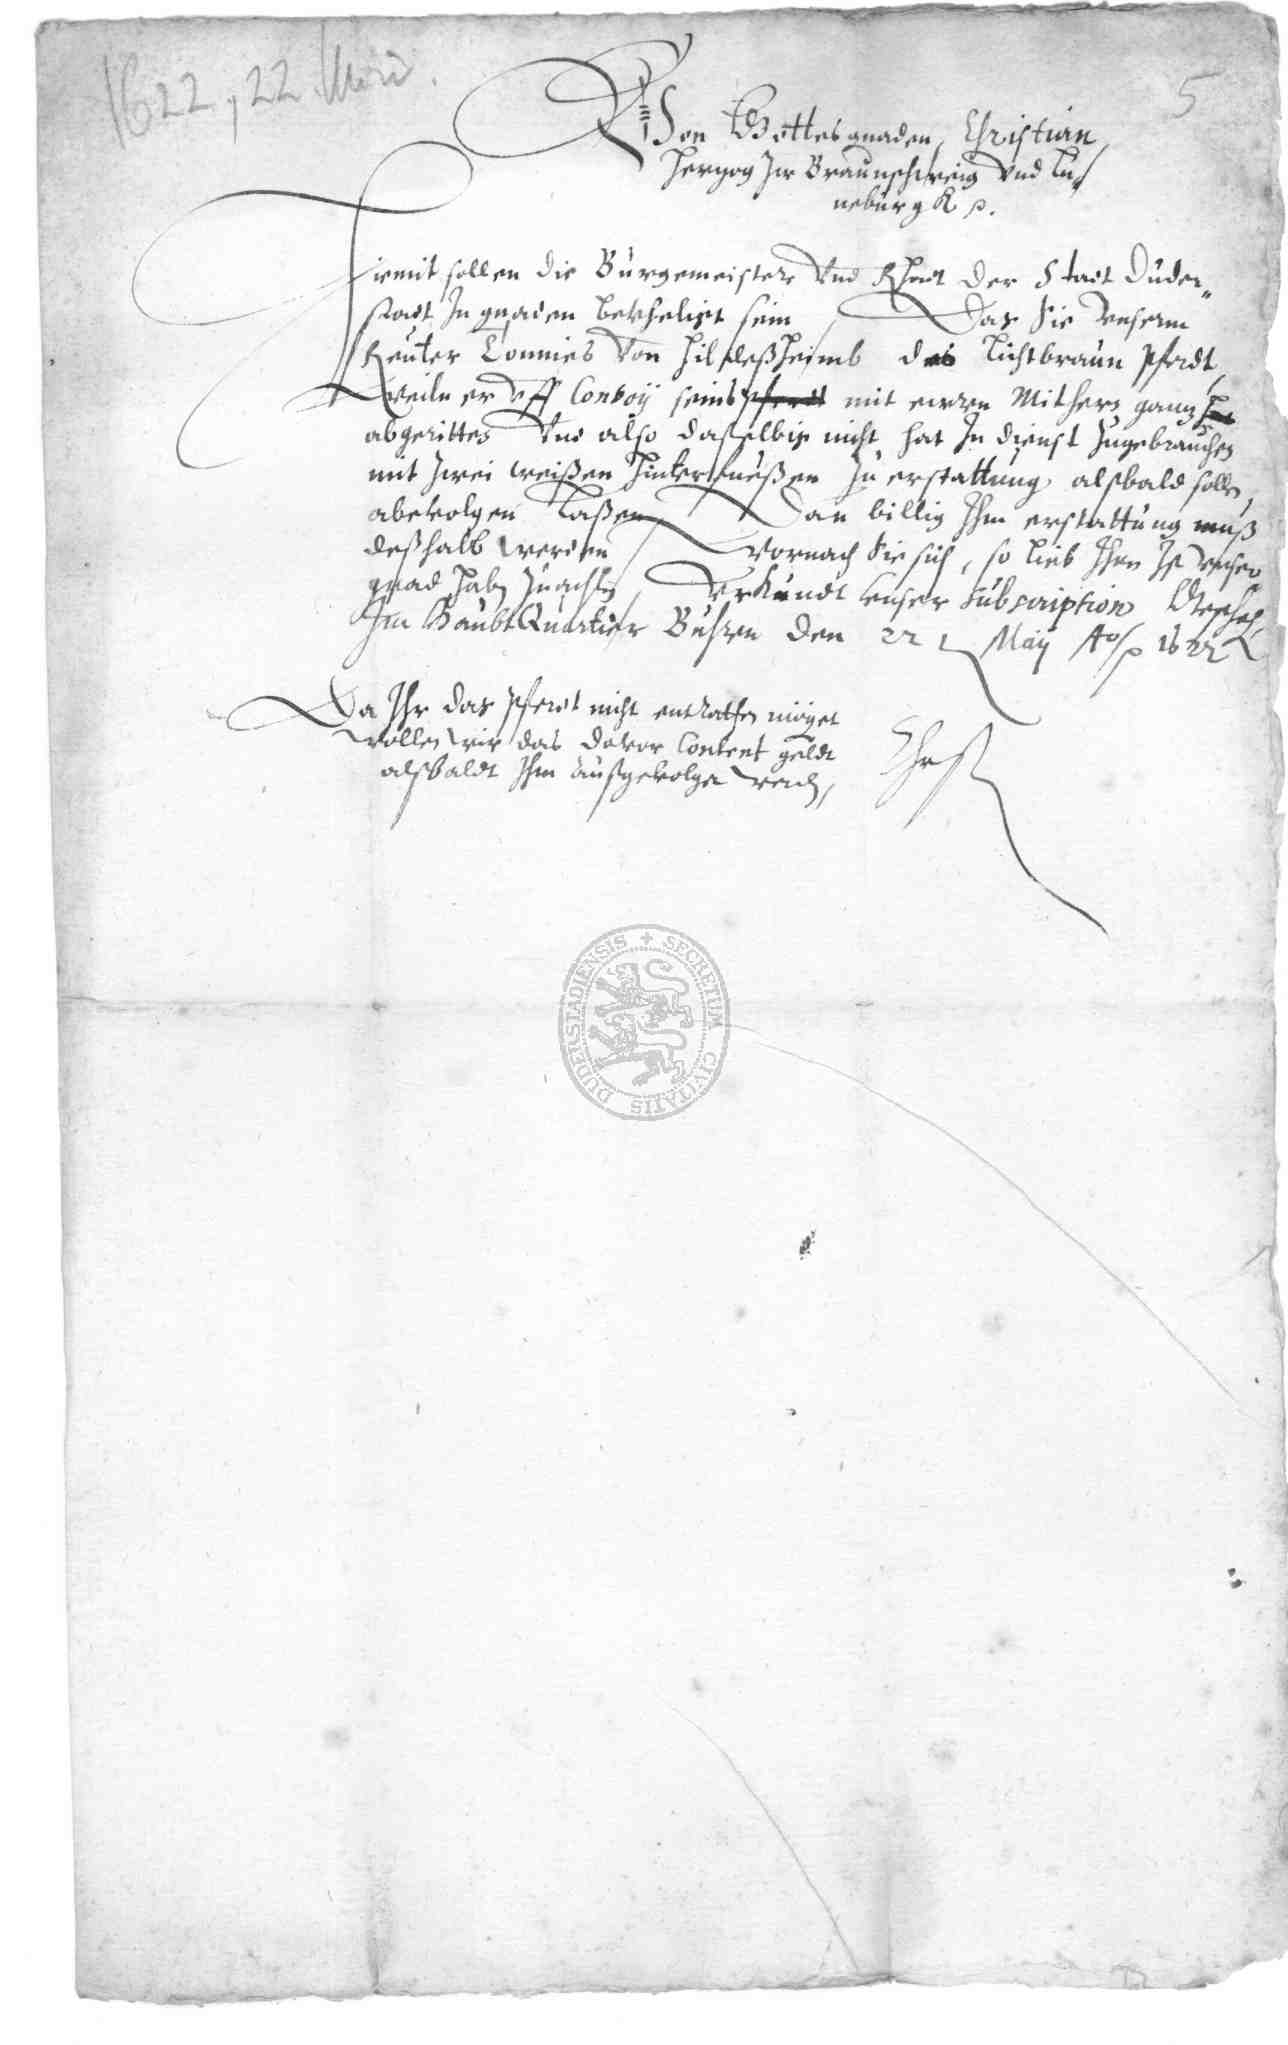 1622, 22 Mai.
5
Von Gottes gnaden, Christian,
Herzog zu Braunschweig Vnd Lu-
neburg
Hiemit sollen die Burgemeistere Vnd Rhatt der Stadt Duder-
stadt In gnaden bevheligt sein, Das Sie vnserm
Reuter Tonnies Von Hildeßheimb das lichtbraun Pferdt,
Weiln er vff Convoÿ seins mit ewren Mithern ganz
abgeritten Vnd also daßelbig nicht hat In dienst Zugebrauchen
mit zwei weißen Hinterfueßen zu erstattung alsbald sollen
abevolgen laßen, Dan billig Ihm erstattung muß
deßhalb werden, Wornach Sie sich, so lieb Ihnen Ist vnser
gnad haben zuachten, Verkundt vnser Subscription Geschehen
Im HaubtQuartier Buhren den 22 Maÿ Ao 1622
Da Ihr das Pferdt nicht entrathen möget
wollen wir das davor Content geldt
alsbaldt Ihm außgevolget werde,
Chr
DUDERSTADIENSIS + SECRETUM CIVITATIS